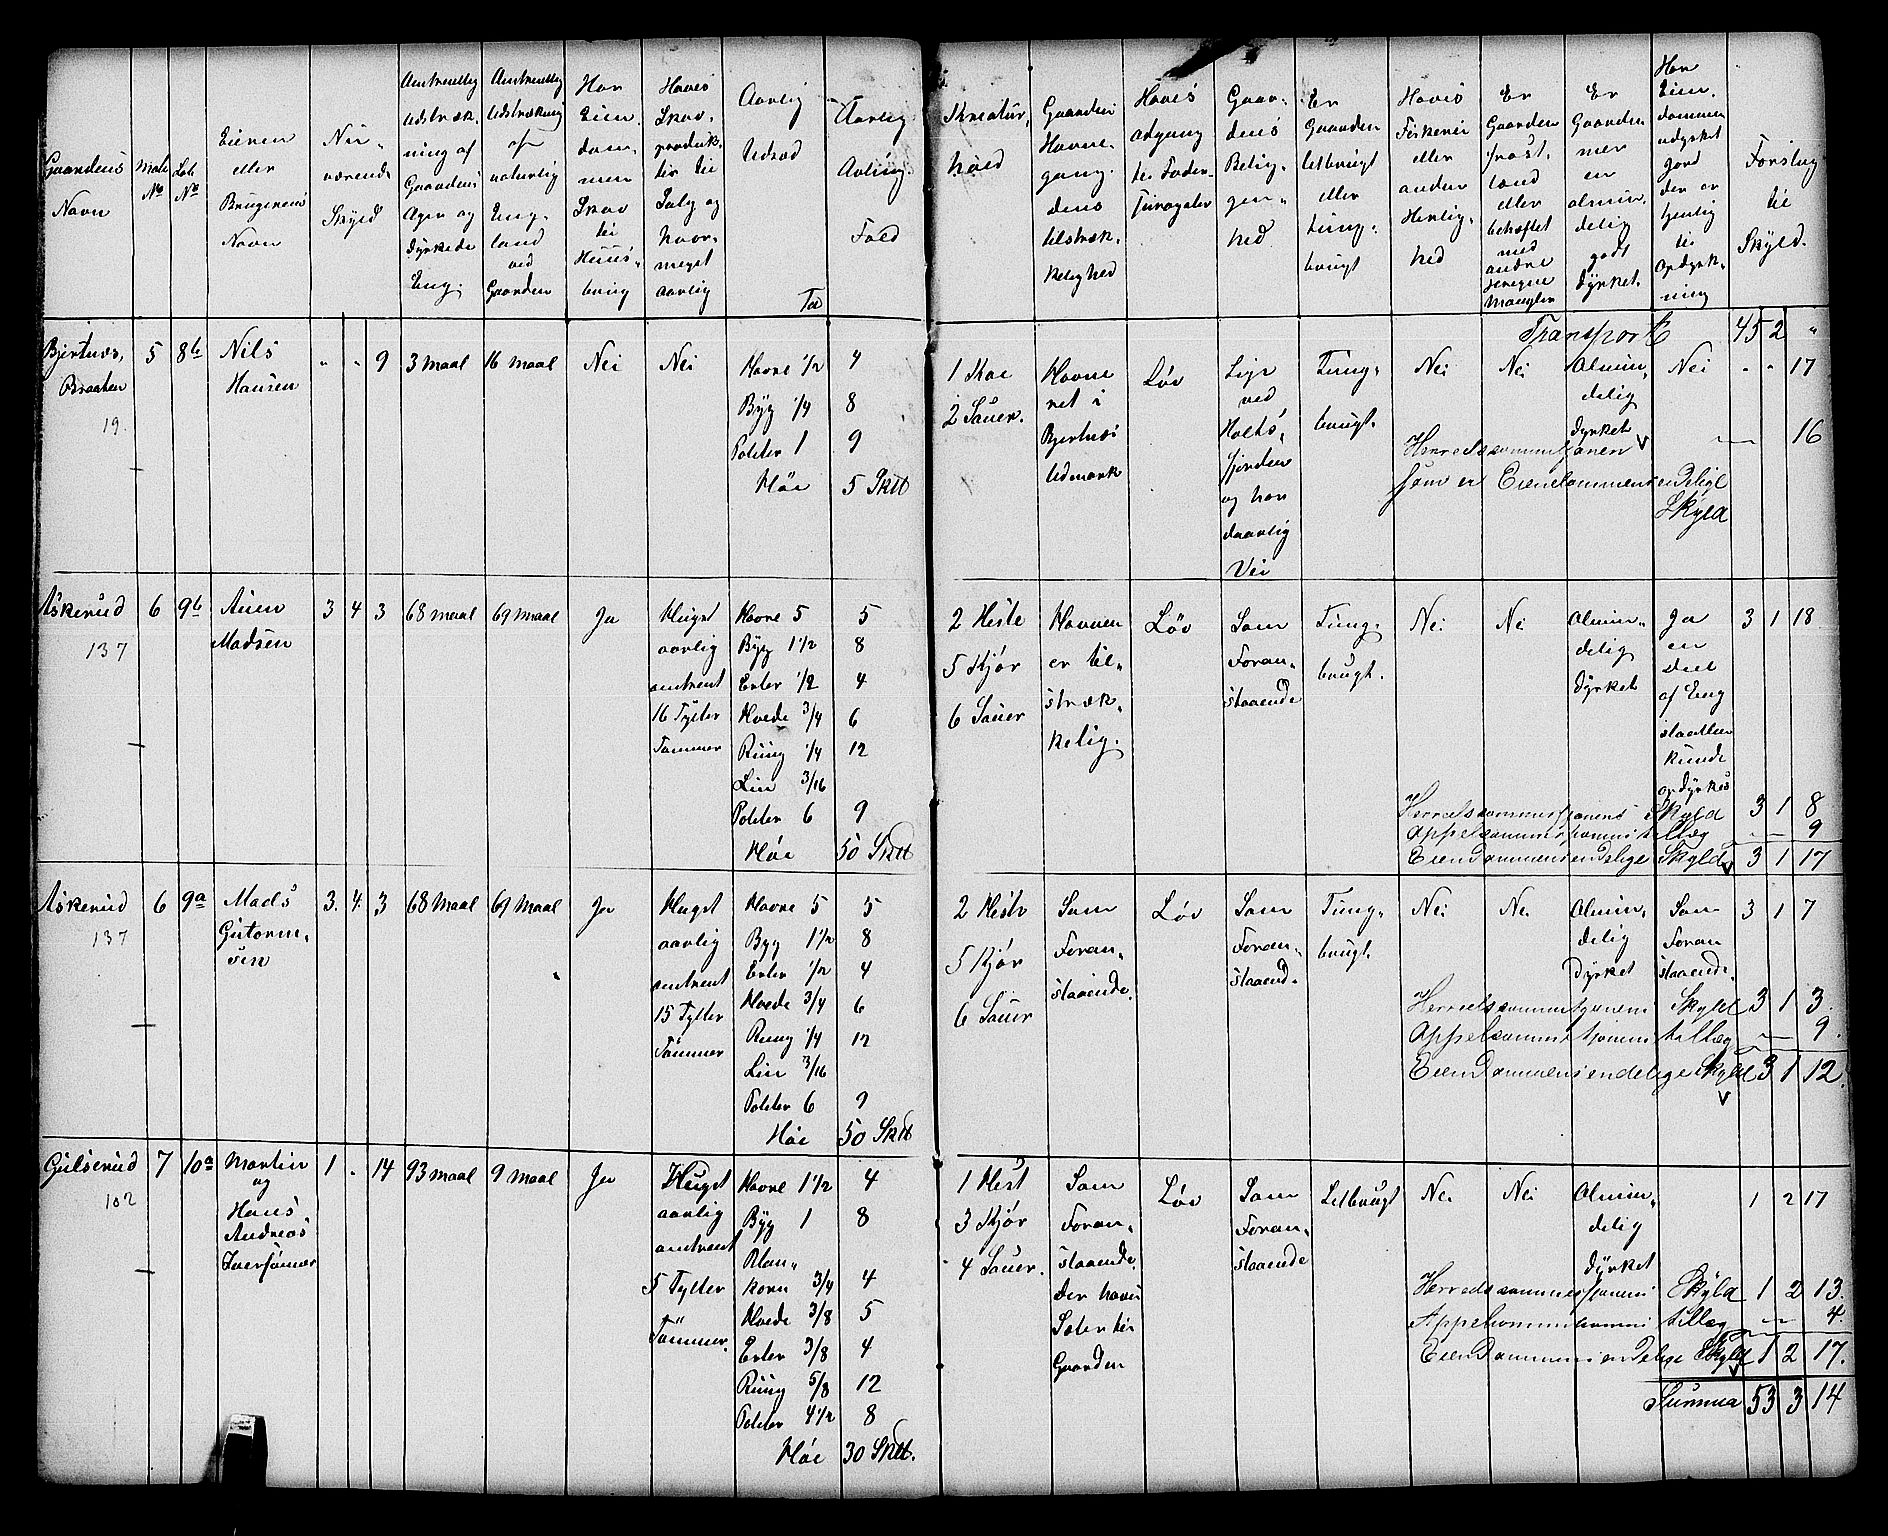 Gaardens
Navn
Matr
No
Løb
No
Eieren
eller
Brugerens
Navn
Nu-
værende
Skyld
Omtrentlig
Udstræk-
ning af
Gaardens
Ager og
dyrkede
Eng.
Omtrentlig
Udstrækning
af
naturlig
Eng-
land
ved
Gaarden
Har
Eien-
dom-
men
Skov
til
Huus-
brug
Haves
Skov-
produk-
ter til
Salg og
hvor-
meget
aarlig
Aarlig
Udsæd
Tdr
Aarlig
Avling.
Fold
Kreatur-
hold
Gaardens
Havne-
gang.
dens
tilstræk-
kelighed
Haves
adgang
til Foder-
surogater
Gaar-
dens
Belig-
gen-
hed
Er
Gaarden
letbrugt
eller
tung-
brugt
Haves
Fiskerie
eller
anden
Herlig-
hed
Er
Gaarden
frost-
lændt
eller
behæftet
med
andre
Mangler
Er
Gaarden
mer
en
almin-
delig
godt
dyrket.
Har
Eien-
dommen
udyrket
jord
der er
tjenlig
til
opdyrk-
ning
Forslag
til
Skyld.
Transport 45 2 "
Bjertnæs,
Braaten
19.
5 8b Nils
Hansen
" " 9 3 maal 16 maal Nei Nei
Havre 1/2 4
Byg 1/4 8
Poteter 1 9
Høe 5 Sk℔
1 Koe
2 Sauer.
Havne
ret i
Bjertnæs
Udmark
Løv
Lige
ved
Holts-
fjorden
og har
daarlig
Vei
Tung-
brugt.
Nei Nei Almin-
delig
dyrket
Nei " " 17
Herredscommissionen — 16
som er Eiendommens endelige
Skyld
Askerud
137
6 9b Auen
Madsen
3 4 3 68 maal 69 maal Ja
Huget
aarlig
omtrent
16 Tylter
Tømmer
Havre 5 5
Byg 1 1/2 8
Erter 1/2 4
Hvede 3/4 6
Ruug 1/4 12
Lin 3/16
Poteter 6 9
Høe 50 Sk℔
2 Heste
5 Kjør
6 Sauer
Havnen
er til-
stræk-
kelig.
Løv
Som
Foran-
staaende
Tung-
brugt.
Nei Nei Almin-
delig
dyrket
Ja
en
Deel
af Eng
slaatten
kunde
opdyrkes
3 1 18
Herredscommissionens Skyld 3 1 8
Appelcommissionens tillæg — 9
Eiendommens endelige Skyld 3 1 17
Askerud
137
6 9a Mads
Gutorm-
sen
3. 4. 3 68 maal 69 maal Ja
Huget
aarlig
omtrent
15 Tylter
Tømmer
Havre 5 5
Byg 1 1/2 8
Erter 1/2 4
Hvede 3/4 6
Ruug 1/4 12
Lin 3/16
Poteter 6 9
Høe 50 Sk℔
2 Heste
5 Kjør
6 Sauer
Som
Foran-
staaende.
Løv
Som
Foran-
staaende.
Tung-
brugt.
Nei Nei Almin-
delig
dyrket
Som
Foran
staaende.
3 1 7
Herredscommissionens Skyld 3 1 3.
Appelcommissionens tillæg — 9.
Eiendommens endelige Skyld 3 1 12.
Gulserud
102
7 10a Martin
og
Hans
Andreas
Iversønner
1 . 14 93 maal 9 maal Ja
Huget
aarlig
omtrent
5 Tylter
Tømmer.
Havre 1 1/2 4
Byg 1 8
Blan-
korn 3/4 4
Hvede 3/8 5
Erter 3/8 4
Ruug 5/8 12
Poteter 4 1/2 8
Høe 30 Sk℔.
1 Hest
3 Kjør
4 Sauer.
Som
Foran-
staaende.
Der haves
Sæter til
Gaarden
Løv
Som
Foran-
staaende
Letbrugt
Nei Nei Almin-
delig
dyrket
1 2 17
Herredscommissionens Skyld 1 2 13.
Appelcommissionens tillæg — 4.
Eiendommens endelige Skyld 1 2 17.
Summa 53 3 14